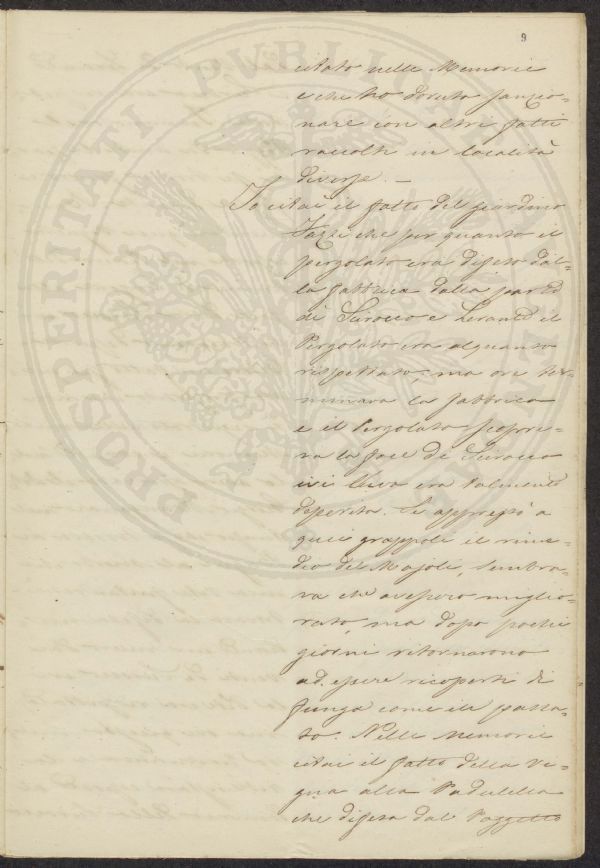 9
citato nelle Memorie
e che ho dovuto sanzio-
nare con altri fatti
raccolti in località
diverse. —
Io citai il fatto del giardino
che per quanto il
pergolato era difeso dal-
la fabbrica dalla parte
di Scirocco e Levante il
Pergolato era alquanto
rispettato, ma ove ter-
minava la fabbrica
e il Pergolato scopri-
va la foce di Scirocco
ivi l'uva era talmente
deperita. Si appressò a
quei grappoli il rime-
dio del Majoli, sembra-
va che avessero miglio-
rato, ma dopo pochi
giorni ritornarono
ad essere ricoperti di
funga come in passa-
to. Nelle Memorie
citai il fatto della vi-
gna alla Padulella
che difesa dal Poggetto
PROSPERITATI PUBLICAE